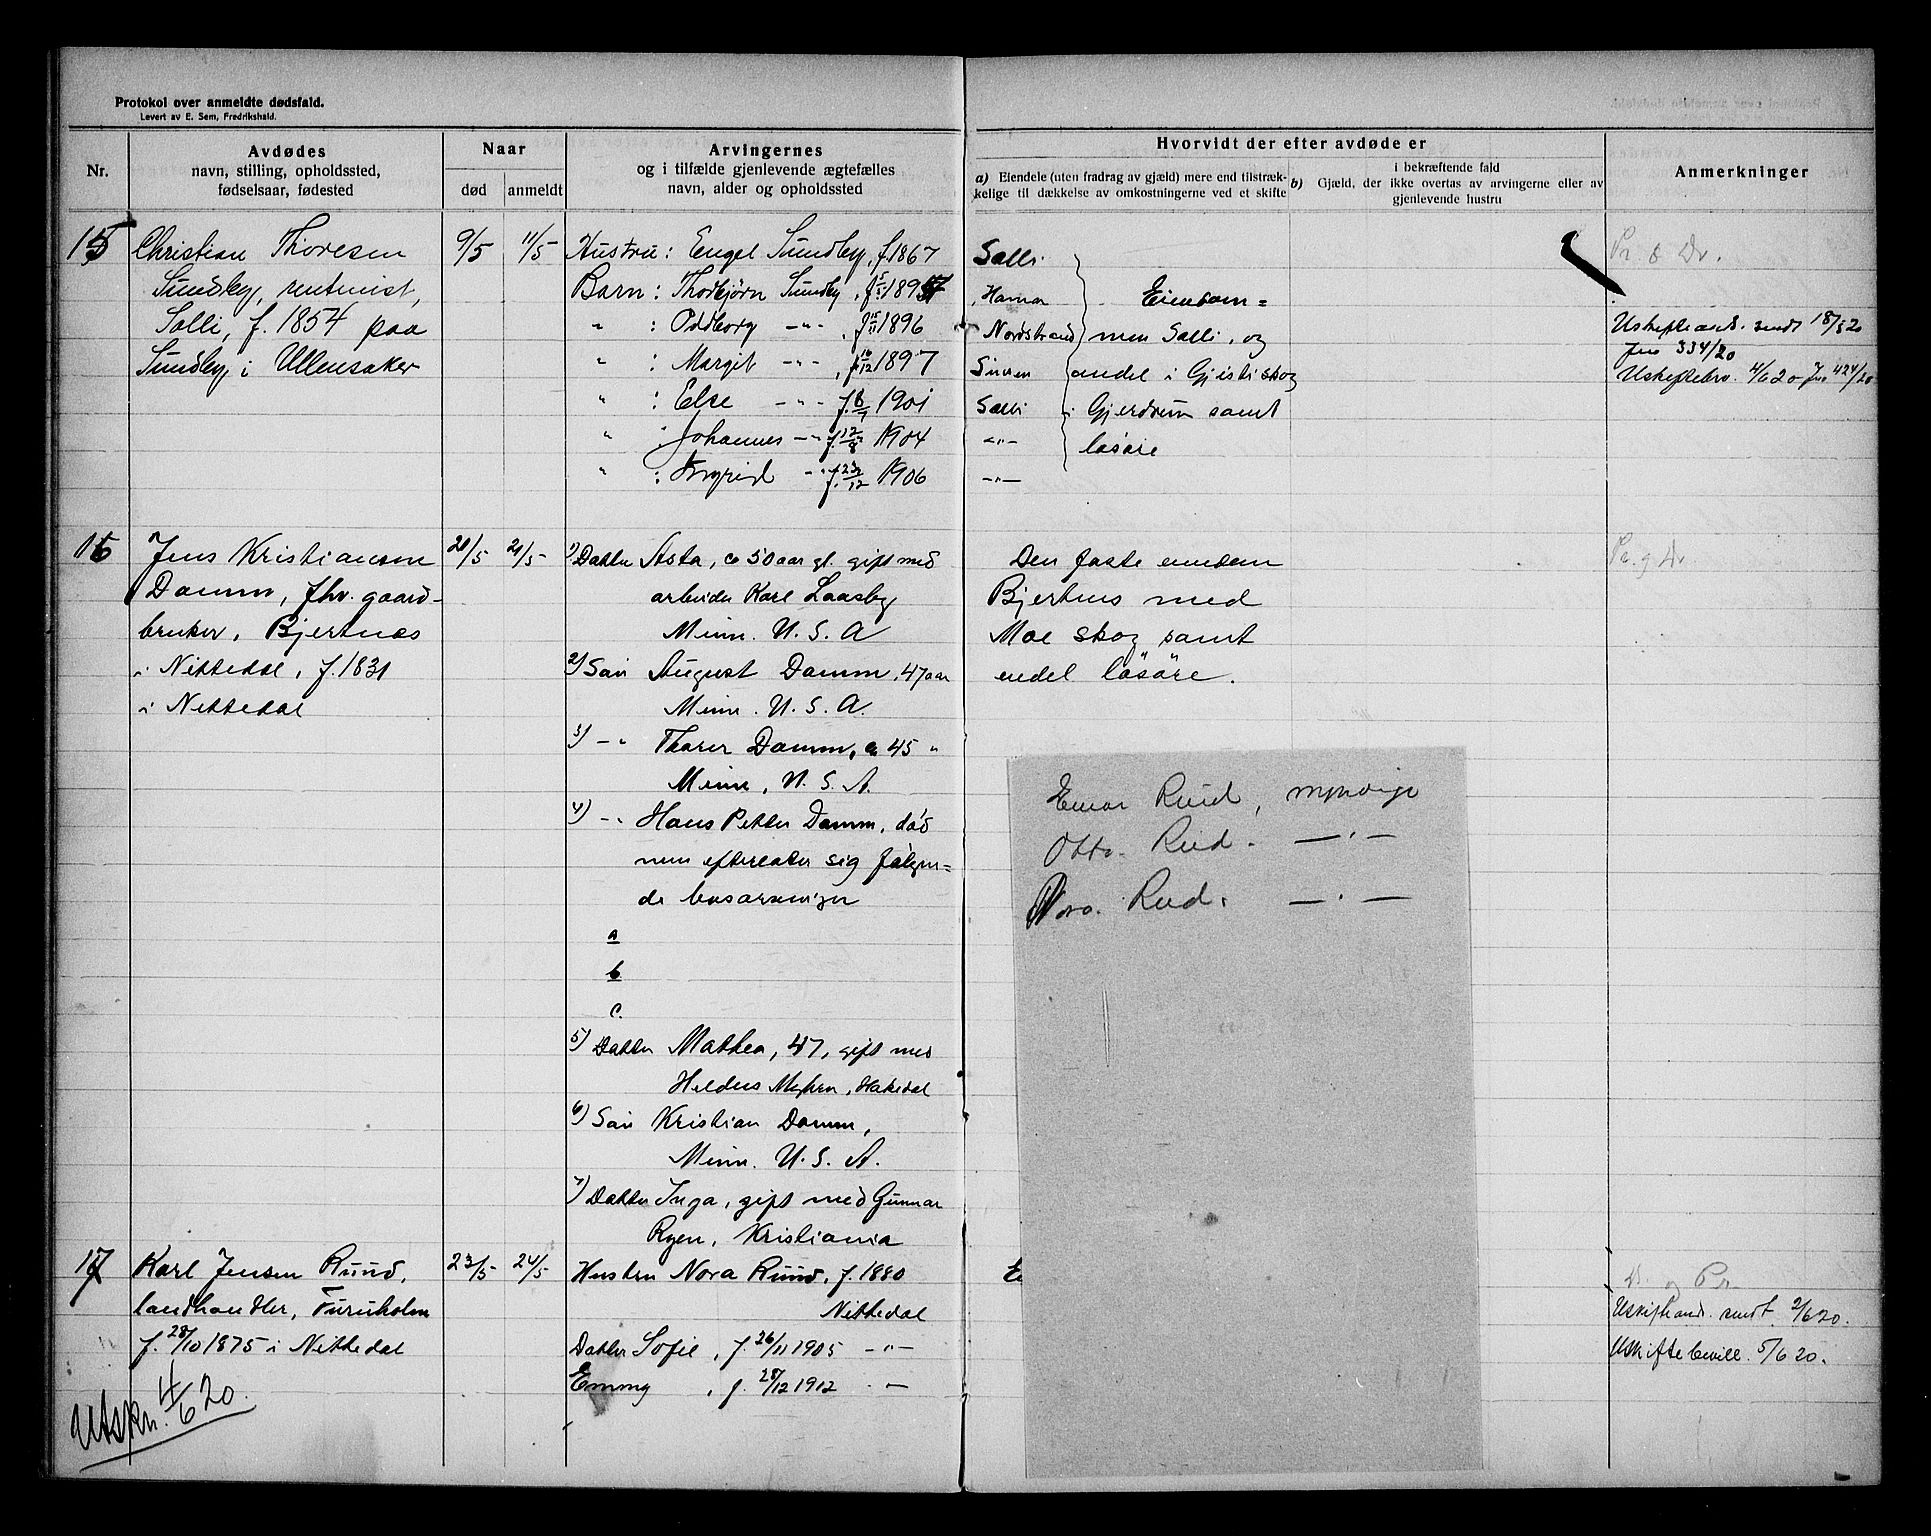 Protokol over anmeldte dødsfald.
Levert av E. Sem, Fredrikshald.
Nr.
Avdødes
navn, stilling, opholdssted,
fødselsaar, fødested
Naar
død
anmeldt
Arvingernes
og i tilfælde gjenlevende ægtefælles
navn, alder og opholdssted
Hvorvidt der efter avdøde er
a) Eiendele (uten fradrag av gjæld) mere end tilstræk-
kelige til dækkelse av omkostningerne ved et skifte
i bekræftende fald
b) Gjæld, der ikke overtas av arvingerne eller av
gjenlevende hustru
Anmerkninger
15
Christian Thoresen
Sundby, rentenist,
Solli, f. 1854 paa
Sundby i Ullensaker
9/5
11/5
Hustru: Engel Sundby, f. 1867
Barn: Thorbjørn Sundby,
" : Oddborg -"- , f 15/11 1896
" : Margit -"- , f 16/12 1897
" : Else -"- f. 6/7 1901
" : Johannes -"- f. 12/8 1904
" : Ingrid -"- f. 23/12 1906
Solli.
Hamar
Nordstrand
Sinsen
Solli
-"-
-"-
Eiendom=
men Solli, og
andel i Gjistiskog
i Gjerdrum samt
løsøre
Pr. & Dr.
Uskifteand. sendt 18/5 20
Jno 334/20
Uskiftebev. 4/6 20 Jno 424/20
16
Jens Kristiansen
Damm, fhv. gaard-
bruker, Bjertnæs
i Nittedal, f. 1831
i Nittedal
20/5
21/5
1) Datter Asta, ca 50 aar gl. gift med
arbeider Karl Laasby
Minn. U. S. A
2) Søn August Damm, 47 aar
Minn. U. S. A.
3) -" Thorer Damm, ca 45 "
Minn, U. S. A.
4) -" Hans Petter Damm, død
men efterlater sig følgen-
de livsarvinger
a
b
c.
5) Datter Mathea, 47, gift med
Myhren, Hakedal
6) Søn Kristian Damm,
Minn. U. S. A.
7) Datter Inga, gift med Gunnar
Ryen, Kristiania
Den faste eiendom
Bjertnes med
Moe skog samt
endel løsøre.
Pr. og Dr
Einar Ruud, myndige
Otto. Ruud. — " —
Nora. Ruud. — " —
17
Karl Jensen Ruud,
landhandler, Furuholm
f. 28/10 1875 i Nittedal
23/5
24/5
Hustru Nora Ruud, f. 1880
Nittedal
Datter Sofie, f. 26/11 1905 -"-
Emmy, f. 28/12 1912 " —
E
Dr. og Pr.
Uskifteand. sendt 2/6 20.
Uskiftebevill. 5/6 20.
Utskr. 4/6 20.